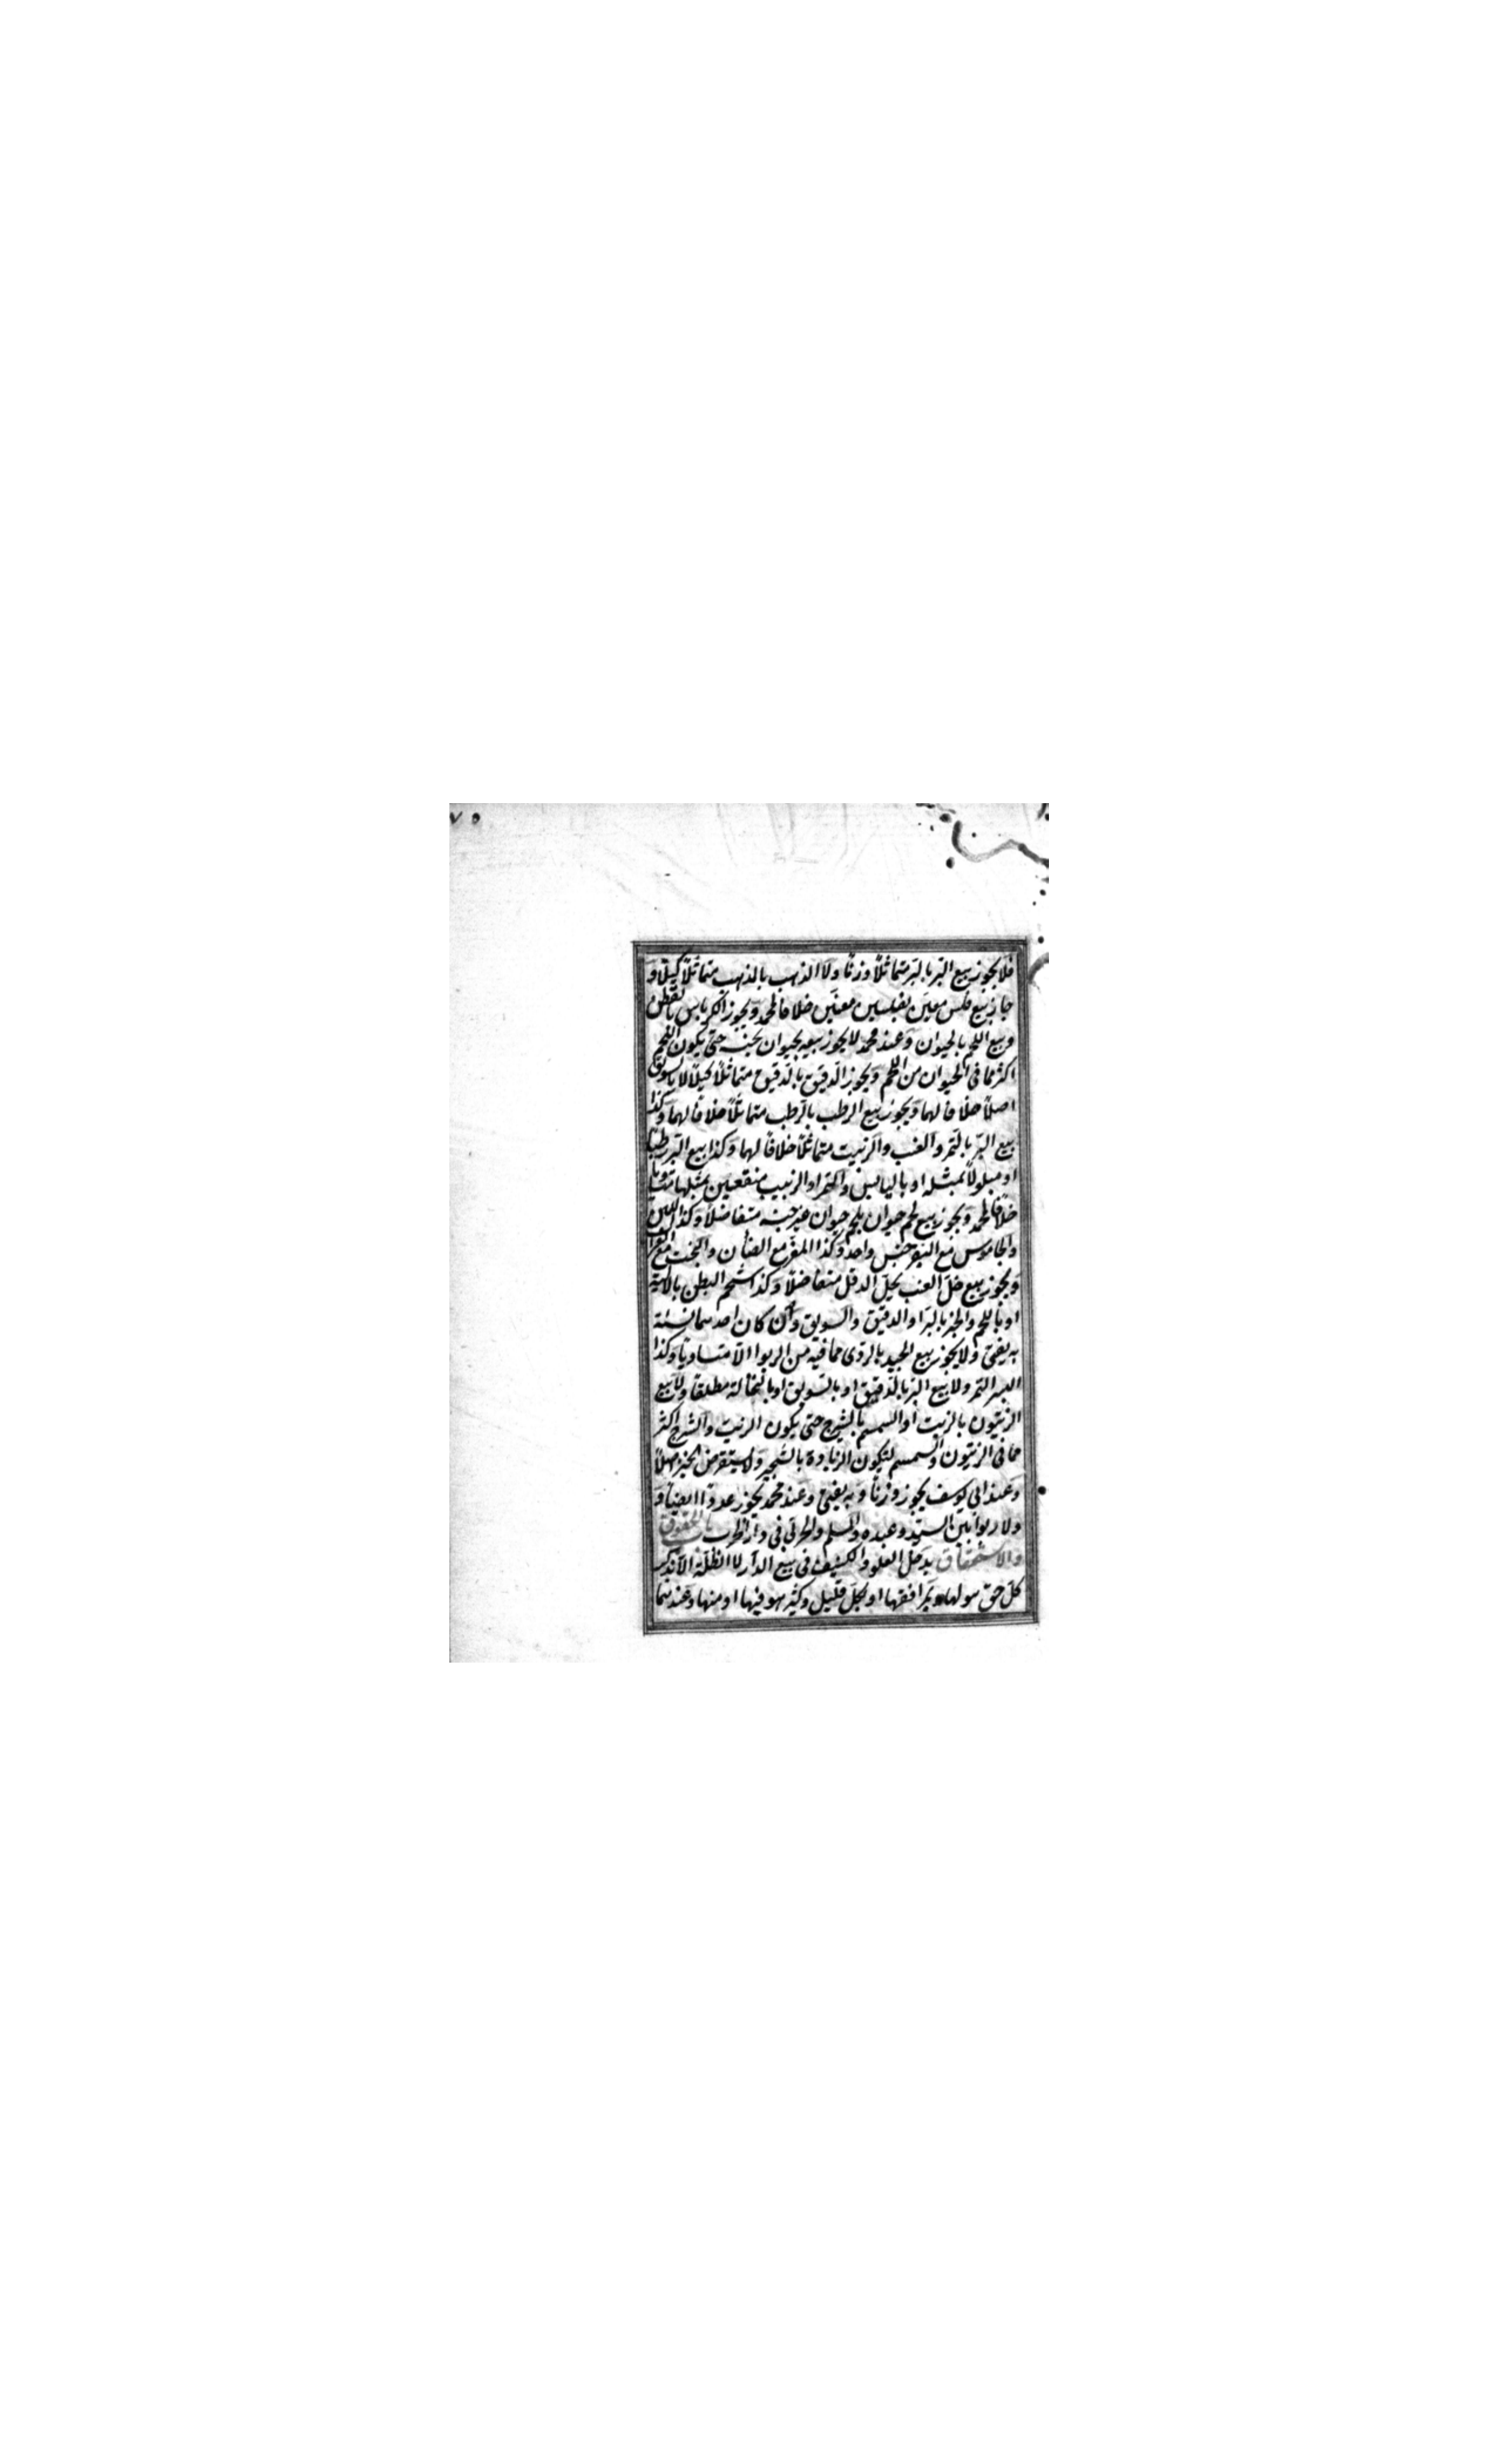 ٧٥
فلا يجوز بيع البرّ بالبرّ متماثلاً وزنًا ولا الذهب بالذهب متماثلاً كيلاً و
جاز بيع فلس معيّن بفلسين معنيّن خلافًا لمحمد ويجوز الكرباس بالقطن
وبيع اللحم بالحيوان وعند محمد لا يجوز بيعه بحيوان بجنسه حتّى يكون اللحم
اكثر مما فى الحيوان من اللحم ويجوز الدقيق بالدقيق متماثلاً كيلاً لا بالسويق
اصلاً خلافا لهما ويجوز بيع الرطب بالرطب متماثلاً خلافًا لهما وكذا
بيع البرّ بالتمر والعنب والزبيت متماثلاً خلافًا لهما وكذا بيع البرّ رطبًا
او مبلولاً بمثله او باليابس والتمر او الزبيب منقعين بمثلهما متساويا
خلافًا لمحمد ويجوز بيع لحم حيوان بلحم حيوان غير جنسه متفاضلاً وكذا اللبن
والجاموس مع البقر جنس واحد وكذا المعز مع الضأن والبخت مع العراب
ويجوز بيع خلّ العنب بخلّ الدقل متفاضلاً وكذا شحم البطن بالالية
او باللحم والخبز بالبرّ او الدقيق والسويق وان كان احدهما نسئة
به يفتى ولا يجوز بيع الجيد بالردى مما فيه من الربوا الاّ متساويًا وكذا
البسر التمر ولا بيع البرّ بالدقيق او بالسويق او بالنخالة مطلقًا ولا بيع
الزيتون بالزيت او السمسم بالشيرج حتى يكون الزيت والشيرج اكثر
مما فى الزيتون والسمسم لتكون الزيادة بالثجير ولا يستقرض الخبز اصلاً
وعند ابى يوسف يجوز وزنًا وبه يفتى وعند محمد يجوز عددًا ايضًا و
ولا ربوا بين السيّد وعبده والمسلم والحربى فى دار الحرب باب الحقوق
والاستحقاق يدخل العلو والكنيف فى بيع الدار لا الظلّة الاّ بذكر
كلّ حقّ هو لها او بمرافقها او بكلّ قليل وكثير هو فيها او منها وعندهما